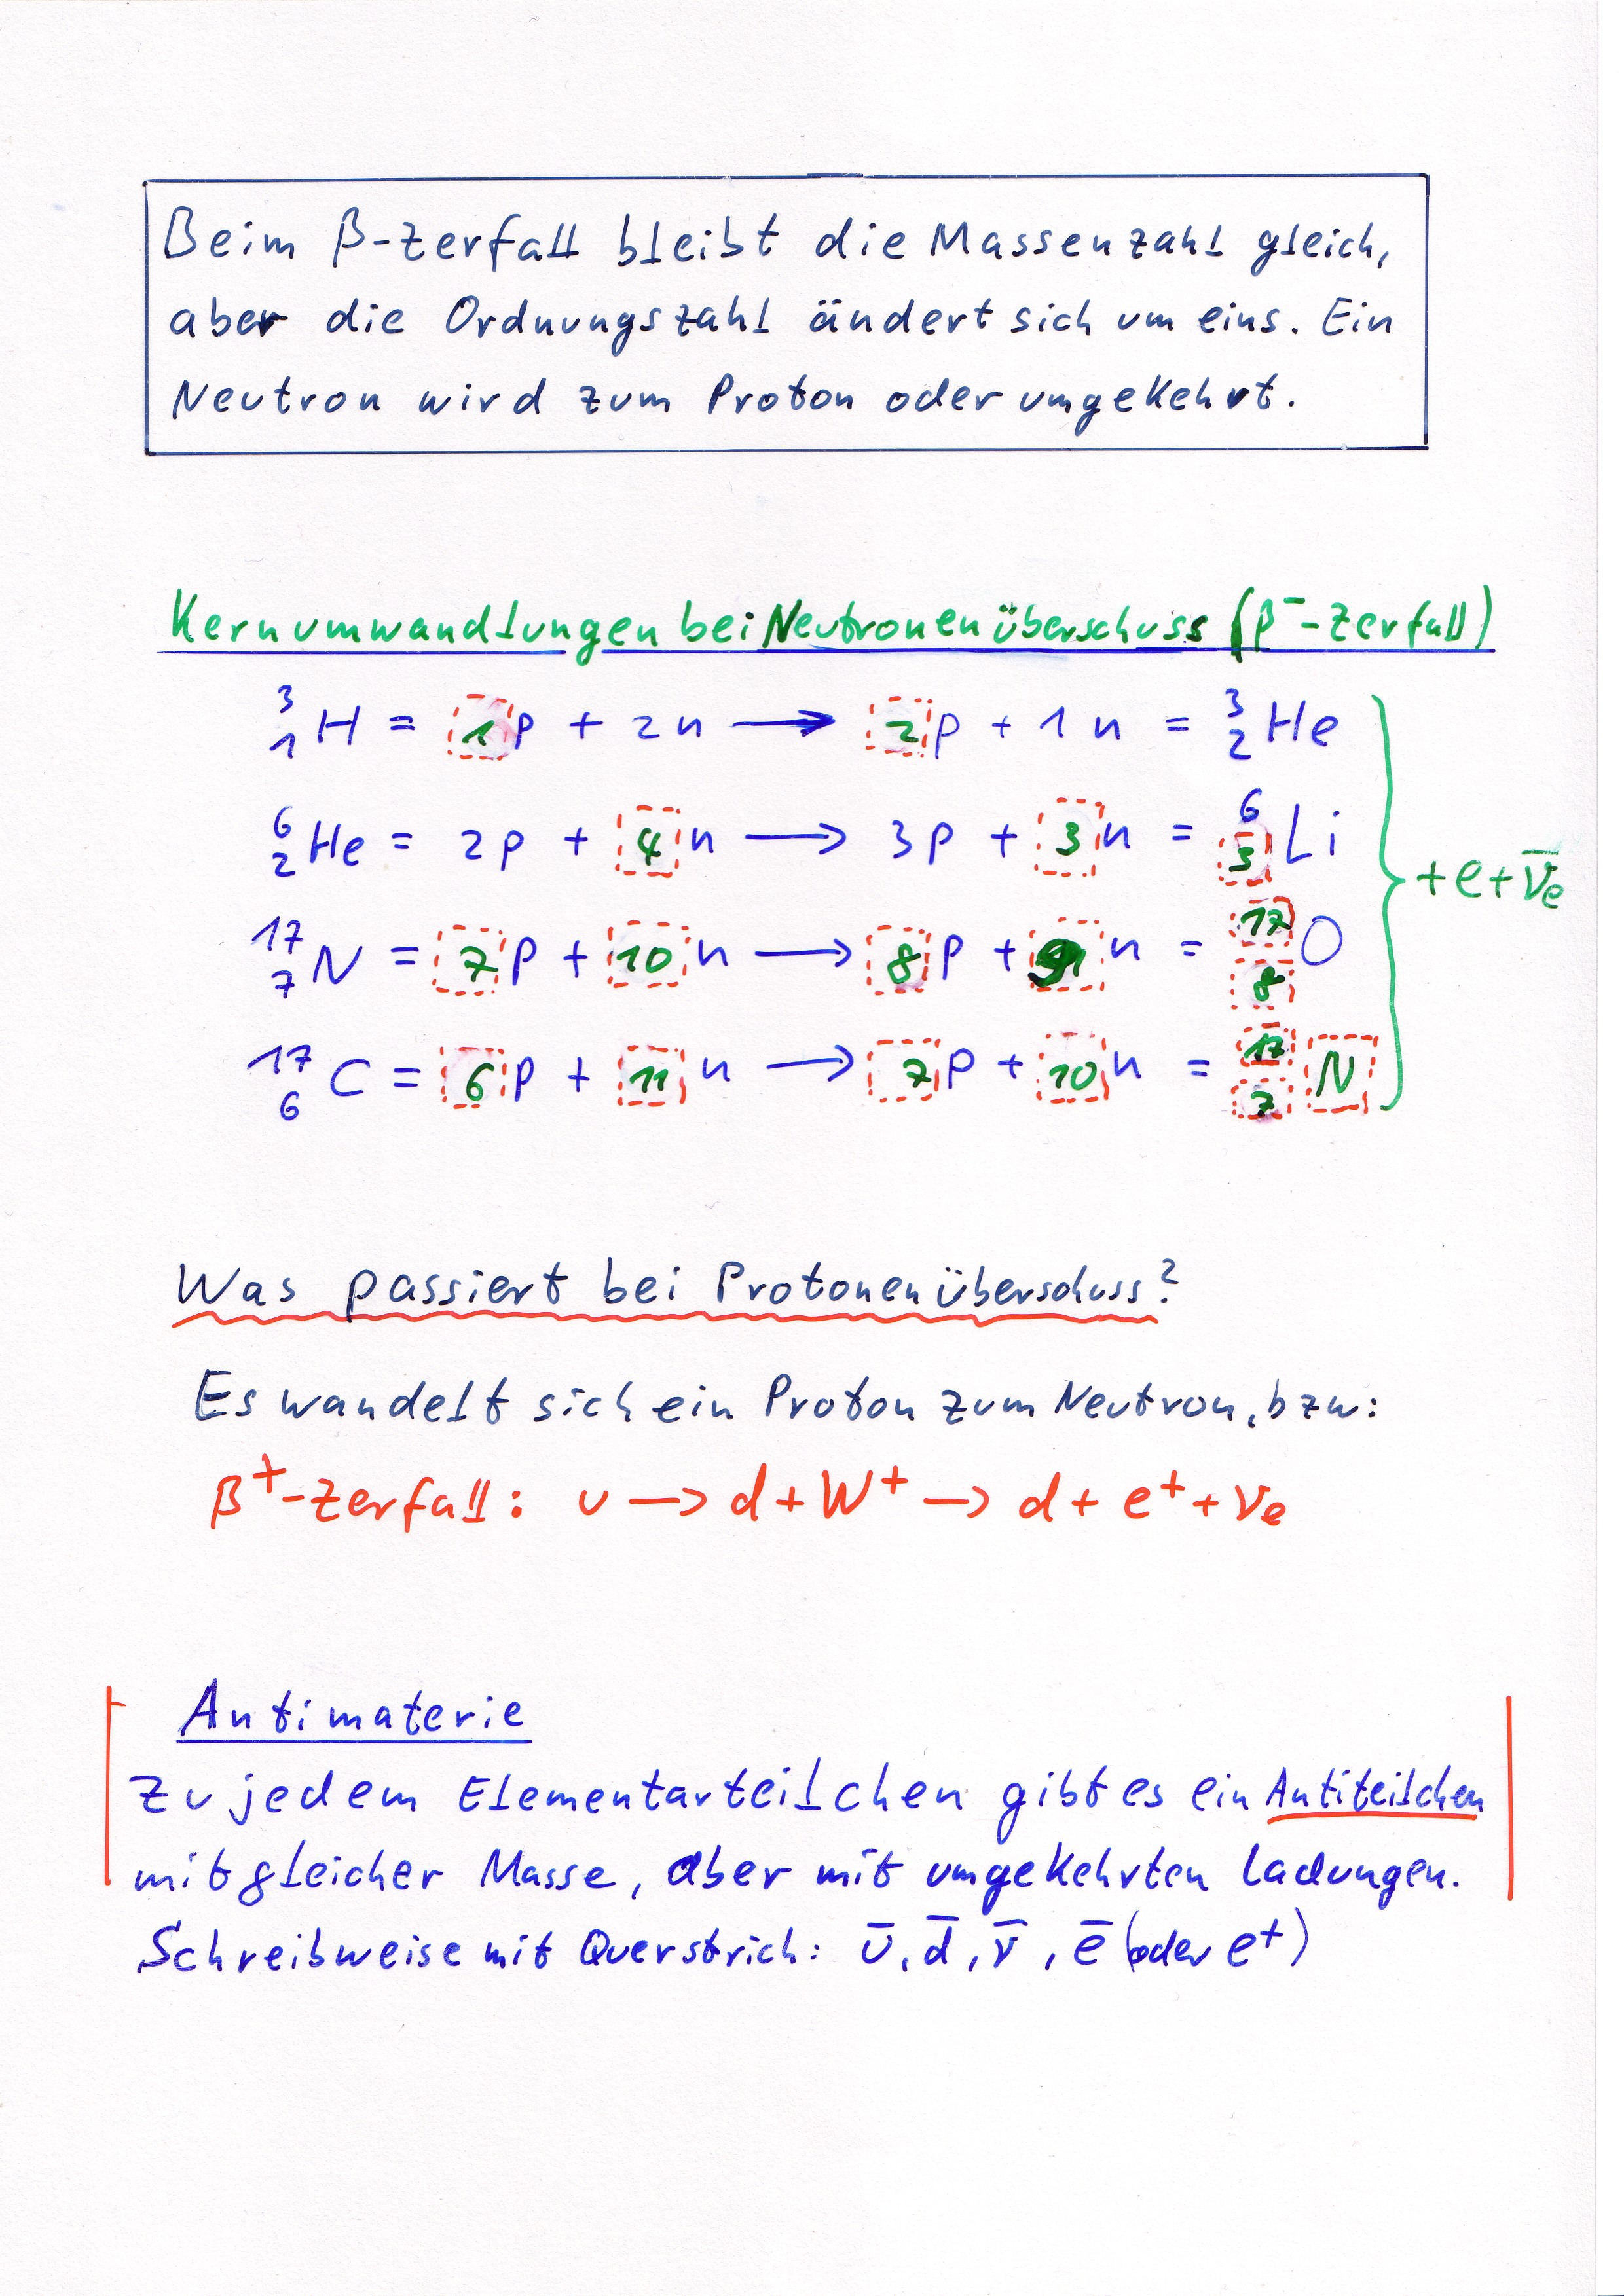 Beim β-Zerfall bleibt die Massenzahl gleich,
aber die Ordnungszahl ändert sich um eins. Ein
Neutron wird zum Proton oder umgekehrt.
Kernumwandlungen bei Neutronenüberschuss (β⁻-Zerfall)
³₁H = 1p + 2n → 2p + 1n = ³₂He
⁶₂He = 2p + 4n → 3p + 3n = ⁶₃Li
+e+ν̅e
¹⁷₇N = 7p + 10n → 8p + 9n = ¹⁷₈O
¹⁷₆C = 6p + 11n → 7p + 10n = ¹⁷₇N
Was passiert bei Protonenüberschuss?
Es wandelt sich ein Proton zum Neutron, bzw:
β⁺-Zerfall: u → d + W⁺ → d + e⁺ + νe
Antimaterie
Zu jedem Elementarteilchen gibt es ein Antiteilchen
mit gleicher Masse, aber mit umgekehrten Ladungen.
Schreibweise mit Querstrich: u̅, d̅, ν̅, e̅ (oder e⁺)